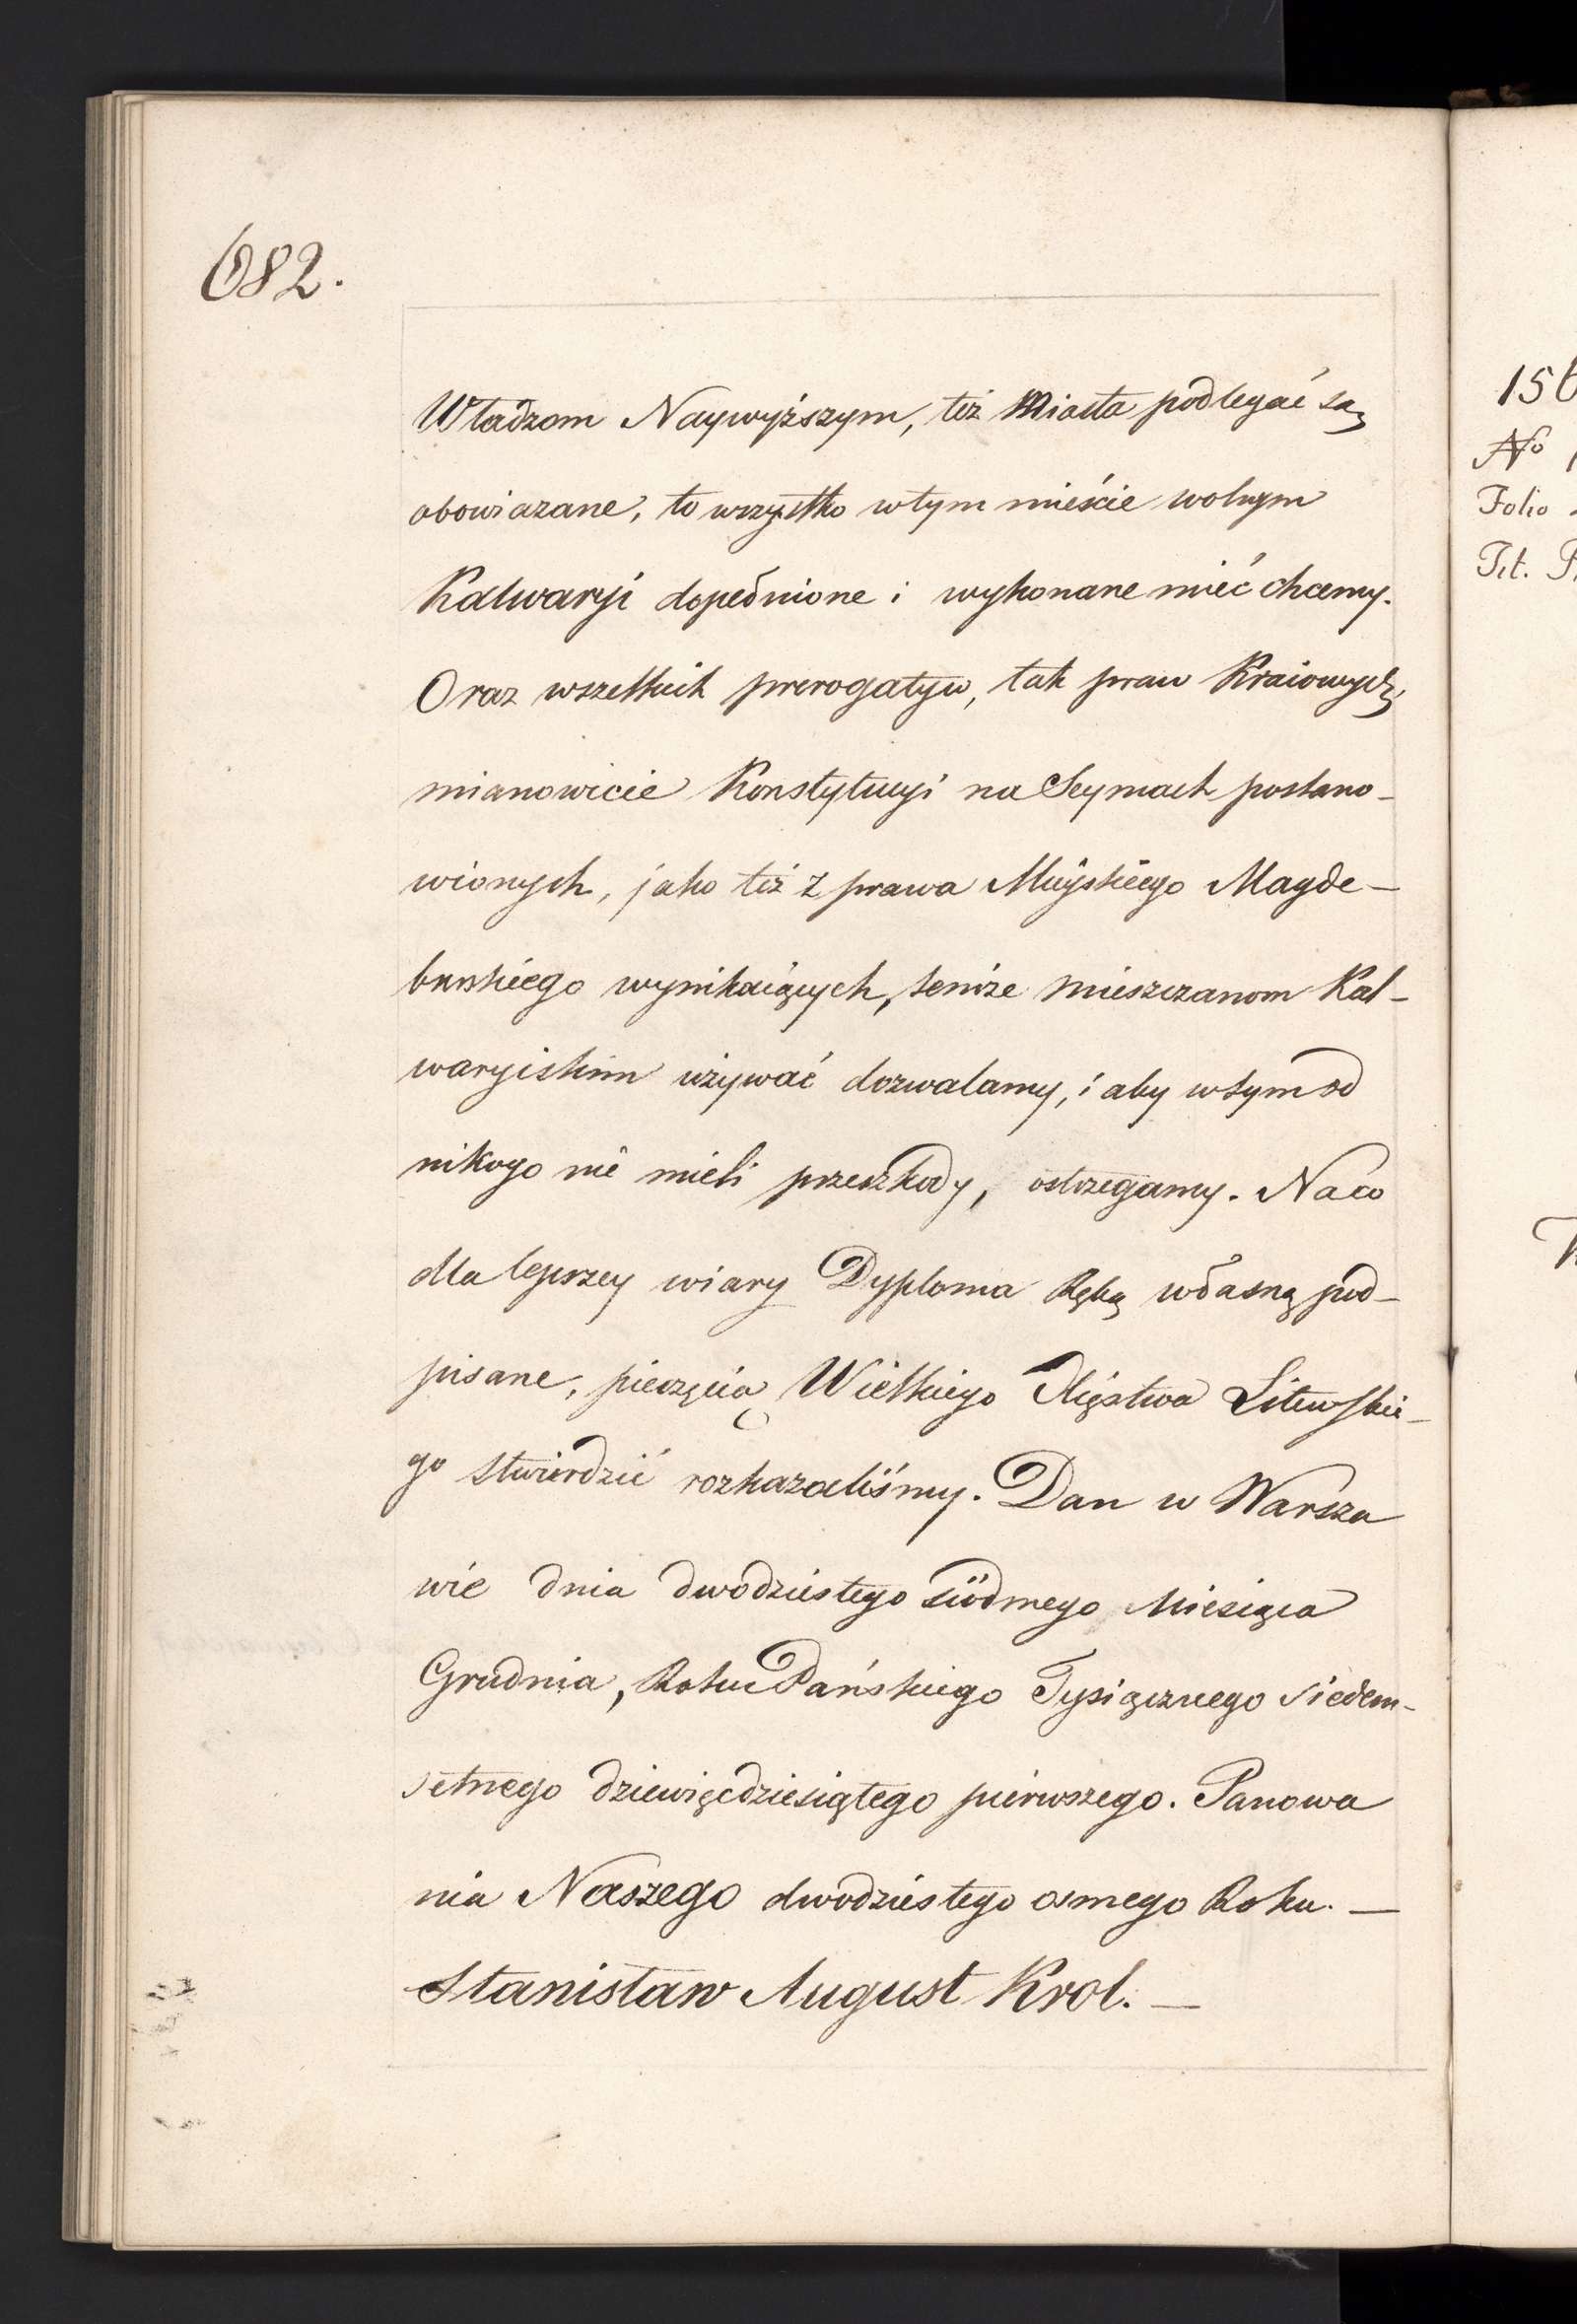 682.
Władzom Naywyższym, też Miasta podlegać są
obowiązane, to wszystko w tym mieście wolnym
Kalwaryi dopełnione i wykonane mieć chcemy.
Oraz wszelkich prerogatyw, tak praw Kraiowych,
mianowicie Konstytucyi na Seymach postano-
wionych, jako też z prawa Mieyskiego Magde-
burskiego wynikaiących, temże mieszczanom Kal-
waryiskim używać dozwalamy, i aby w tym od
nikogo nie mieli przeszkody, ostrzegamy. Na co
dla lepszey wiary Dyploma Ręką własną pod-
pisane, pieczęcią Wielkiego Xięstwa Litewskie-
go stwierdzić rozkazaliśmy. Dan w Warsza
wie dnia dwodziestego siódmego Miesiąca
Grudnia, Roku Pańskiego Tysiącznego siedem-
setnego dziewięćdziesiątego pierwszego. Panowa
nia Naszego dwodziestego osmego Roku. —
Stanisław August Krol. —
156
No 1
Folio
Tit. P.